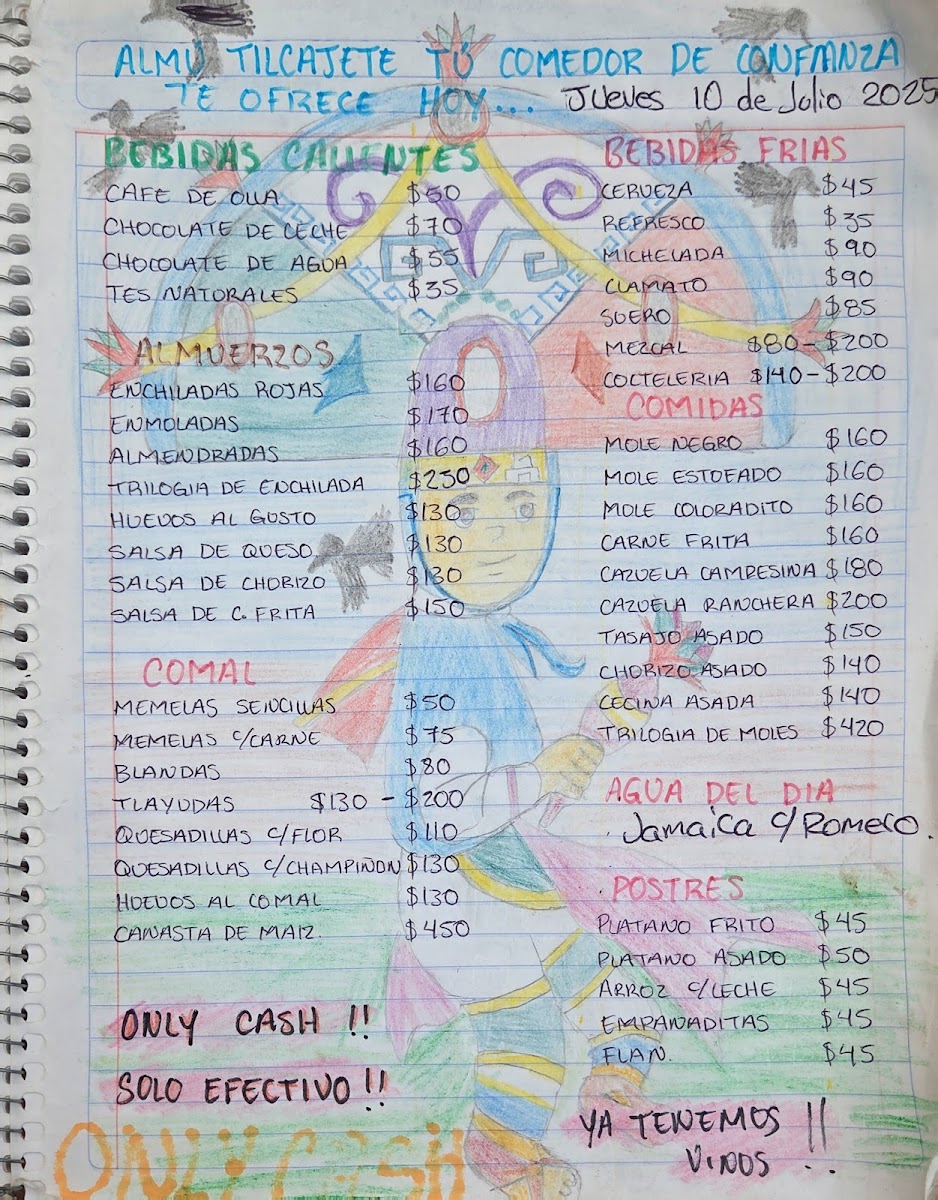 ALMÚ TILCAJETE TÚ COMEDOR DE CONFIANZA
TE OFRECE HOY... Jueves 10 de Julio 2025
BEBIDAS CALIENTES
CAFE DE OLLA $50
CHOCOLATE DE LECHE $70
CHOCOLATE DE AGUA $55
TES NATORALES $35
ALMUERZOS
ENCHILADAS ROJAS $160
ENMOLADAS $170
ALMENDRADAS $160
TRILOGIA DE ENCHILADA $250
HUEVOS AL GUSTO $130
SALSA DE QUESO $130
SALSA DE CHORIZO $130
SALSA DE C. FRITA $150
COMAL
MEMELAS SENCILLAS $50
MEMELAS C/CARNE $75
BLANDAS $80
TLAYUDAS $130 - $200
QUESADILLAS C/FLOR $110
QUESADILLAS C/CHAMPIÑON $130
HUEVOS AL COMAL $130
CANASTA DE MAIZ. $450
ONLY CASH !!
SOLO EFECTIVO !!
ONLY CASH
BEBIDAS FRIAS
CERVEZA $45
REFRESCO $35
MICHELADA $90
CLAMATO $90
SUERO $85
MEZCAL $80-$200
COCTELERIA $140-$200
COMIDAS
MOLE NEGRO $160
MOLE ESTOFADO $160
MOLE COLORADITO $160
CARNE FRITA $160
CAZUELA CAMPESINA $180
CAZUELA RANCHERA $200
TASAJO ASADO $150
CHORIZO ASADO $140
CECINA ASADA $140
TRILOGIA DE MOLES $420
AGUA DEL DIA
Jamaica c/Romero.
POSTRES
PLATANO FRITO $45
PLATANO ASADO $50
ARROZ C/LECHE $45
EMPANADITAS $45
FLAN. $45
YA TENEMOS !!
VINOS ..